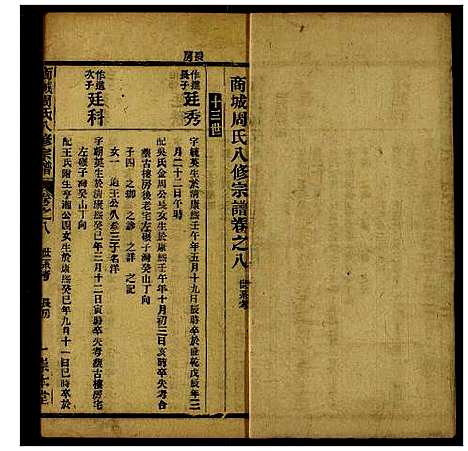 商城周氏八修宗譜卷之八
世系考
長房
十三世
作還長子 廷秀
字毓英生於清康熙壬午年五月十九日辰時卒於乾戊辰年二
月二十二日午時
配吳氏金周公長女生於康熙壬午年十月初三日亥時卒失考合
葬古樓房後老宅左礙子灣癸山丁向
子四 之御 之診 之詳 之記
女一 適王公八系三子名洋
作還次子 廷科
字朝英生於清康熙癸巳年三月十二日寅時卒失考葬古樓房宅
左礙子灣癸山丁向
配王氏附生亨湘公周女生於康熙癸巳年九月十一日巳時卒於
商城周氏八修宗譜 卷之八 世系考 長房 一 堂